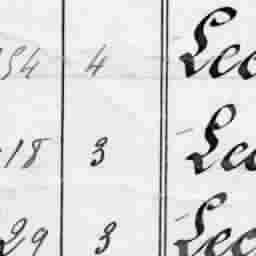 54 4 Leo
18 3 Leo
29 3 Leo